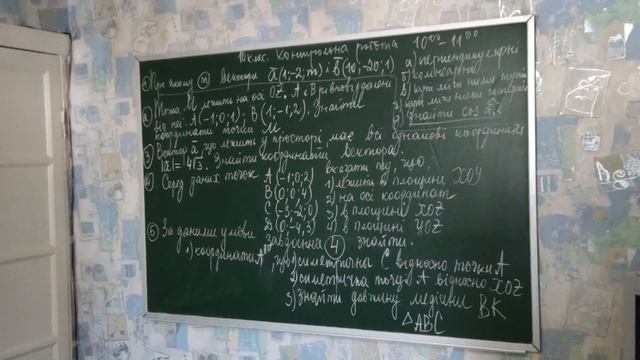 10 клас. Контрольна робота 10⁰⁰-11⁰⁰
① При якому m вектори a(1;-2;m) і b(10;-20;1)
а) перпендикулярні
б) колінеарні
в) кут між ними тупий
г) кут між ними гострий
д) знайти cos a,b
② Точка M лежить на осі OZ. A і B рівновіддалені
від неї. A(-1;0;1), B(1;-1;2). Знайти
координати точки M
③ Вектор a, що лежить у просторі, має всі однакові координати
|a|=4√3. Знайти координати вектора.
④ Серед даних точок вказати ту, що:
A(-1;0;2) 1) лежить в площині XOY
B(0;0;4) 2) на осі координат
C(-3;-2;0) 3) в площині XOZ
D(0;-4;3) 4) в площині YOZ
⑤ За даними умови
завдання ④ знайти.
1) координати, симетрична C відносно точки A
2) симетрична точці A відносно XOZ
3) Знайти довжину медіани BK
△ABC